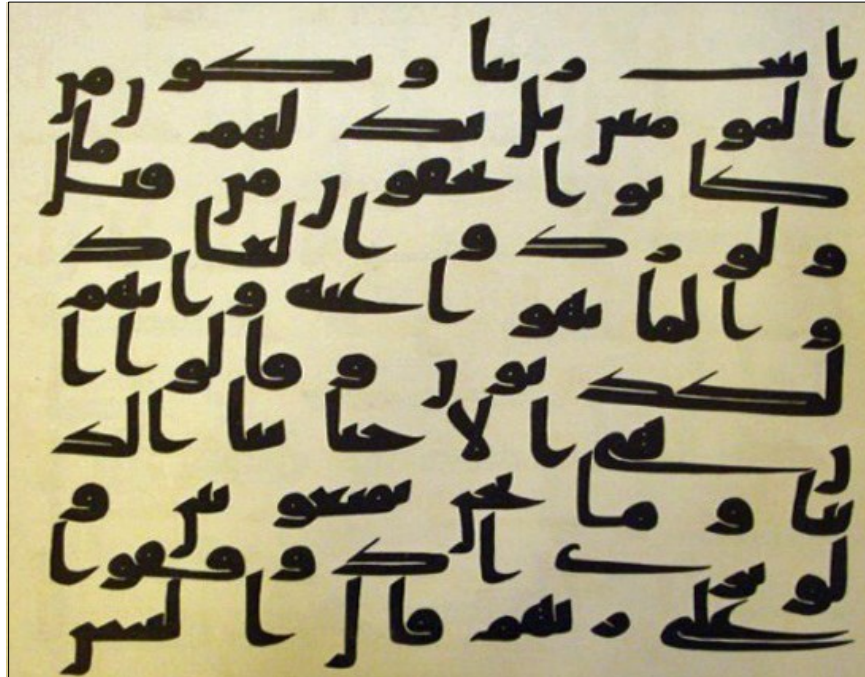 بايت ربنا ونكون من
المومنين بل بدا لهم ما
كانوا يخفون من قبل
ولو ردوا لعاد
وا لما نهوا عنه وانهم
لكذبون وقالوا ا
ن هي الا حياتنا الد
نيا وما نحن بمبعوثين و
لو ترى اذ وقفوا
على ربهم قال اليس